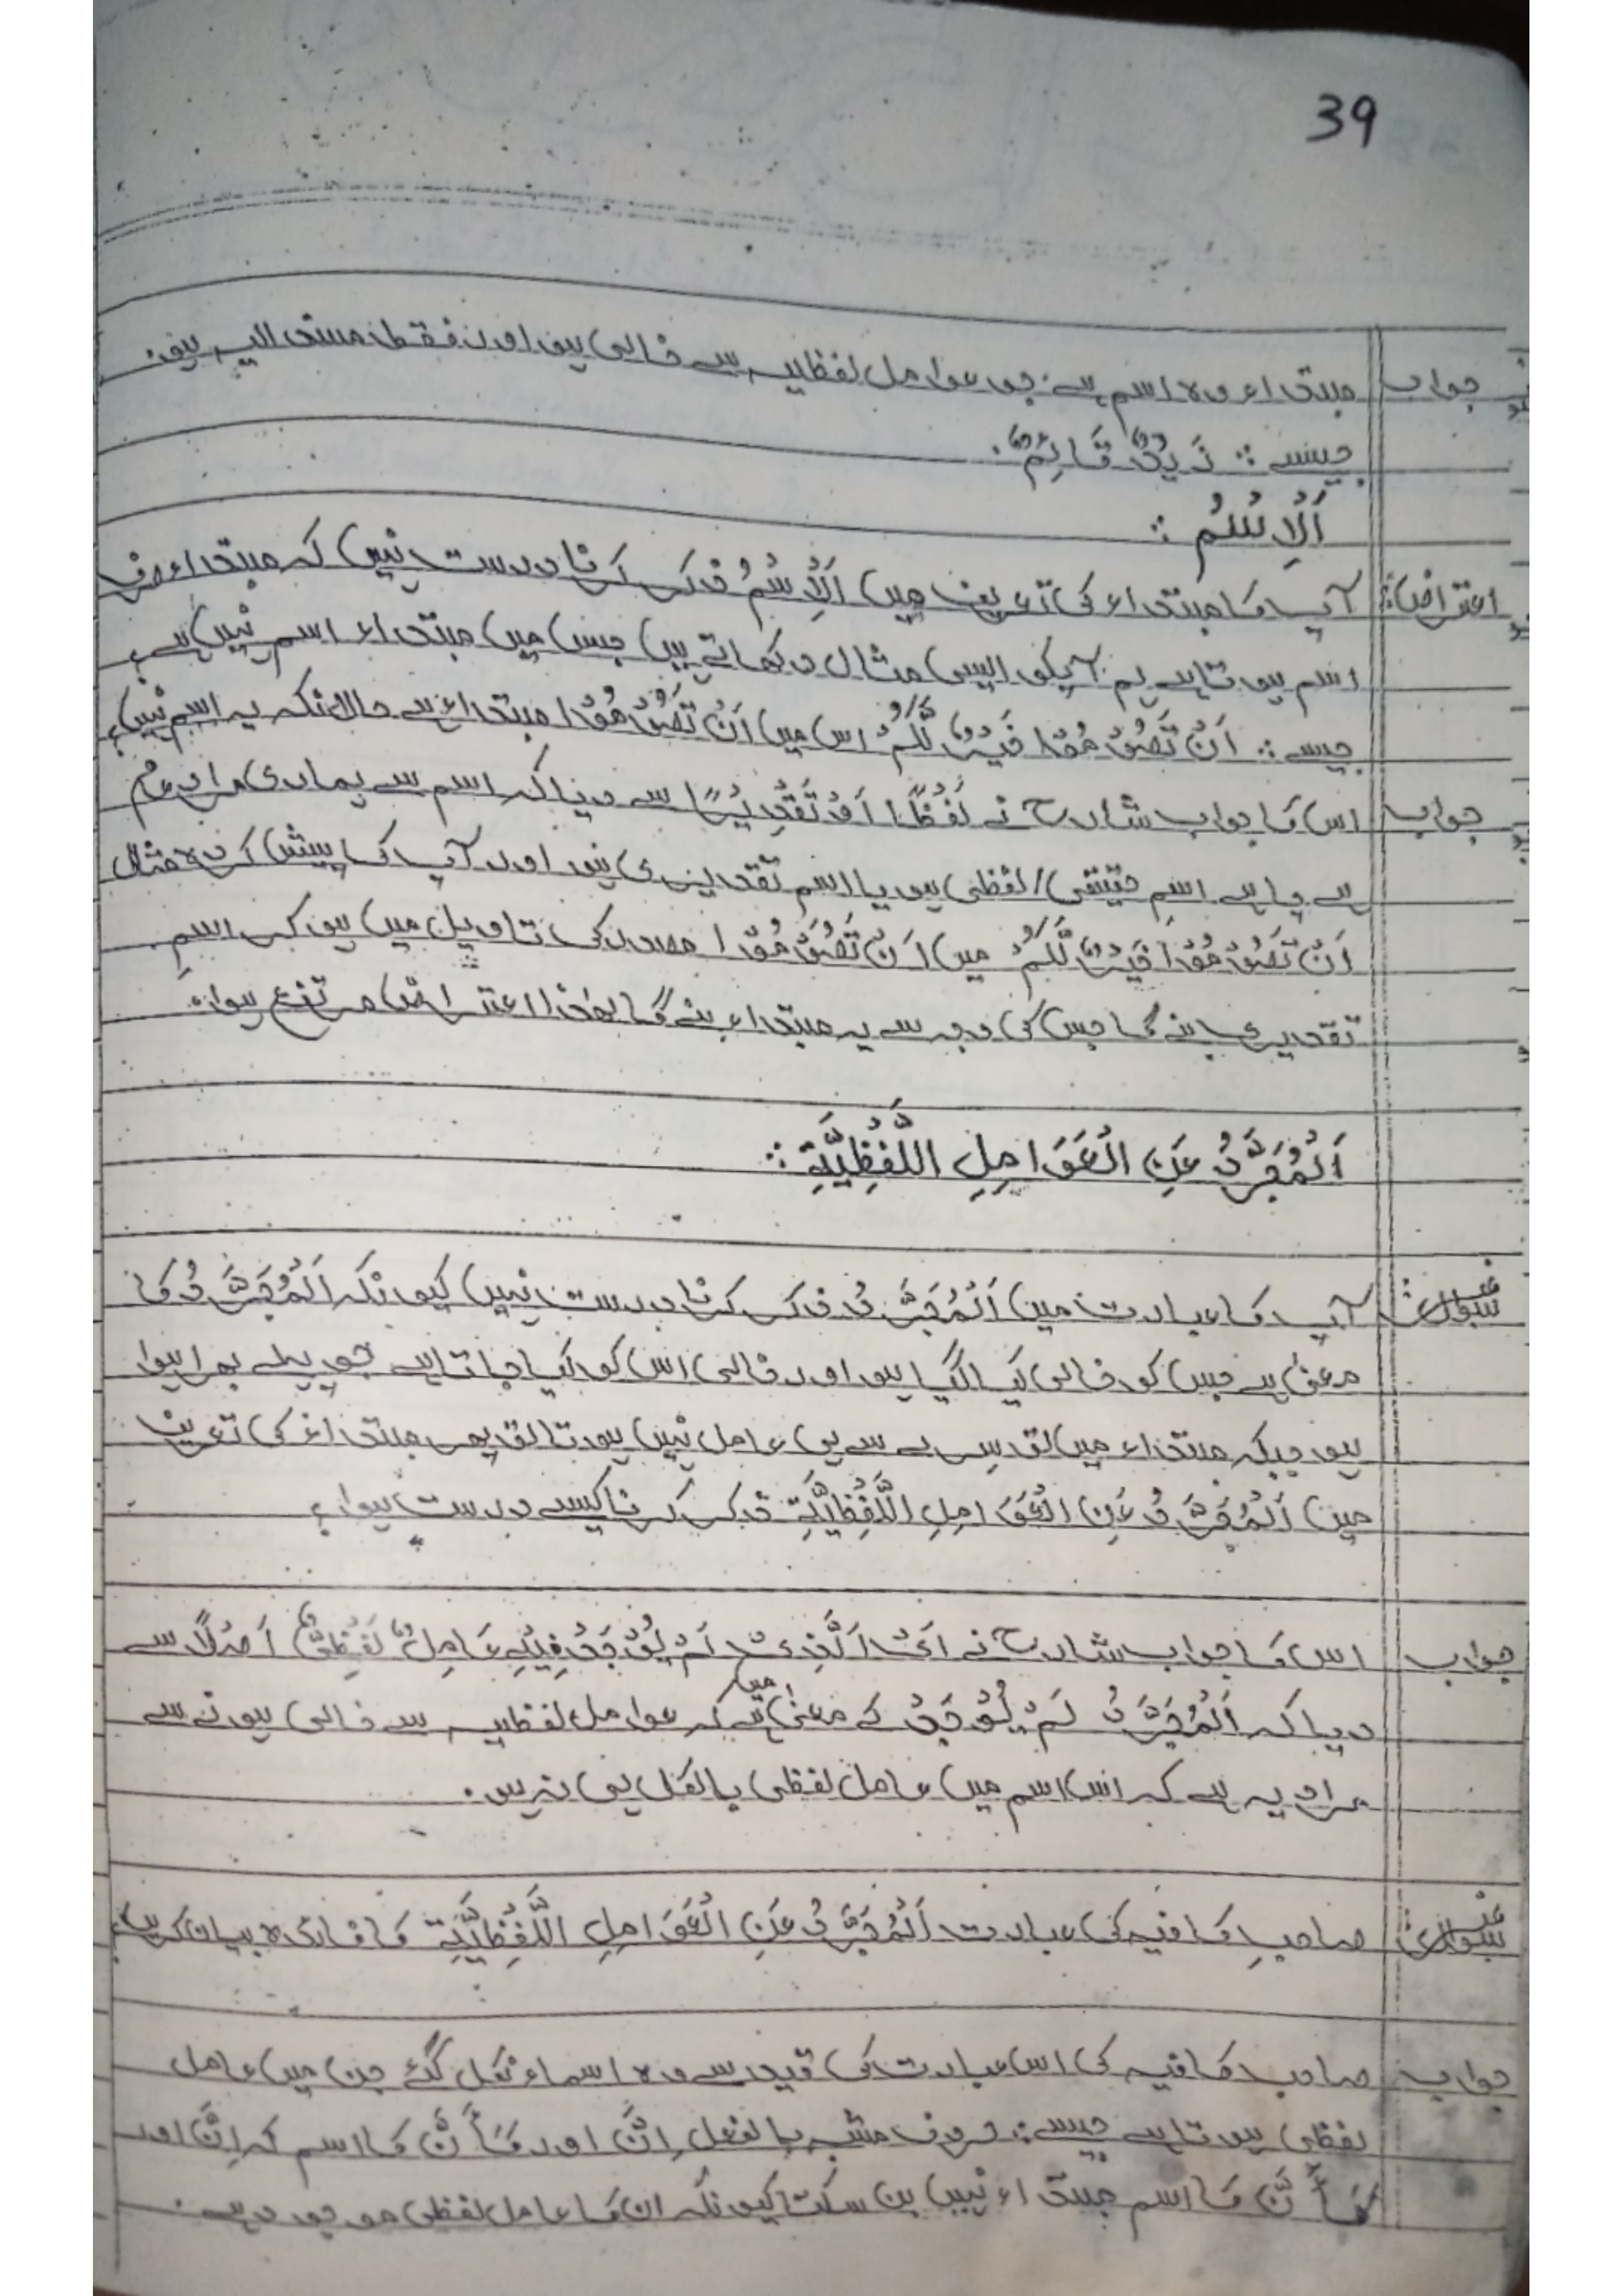 39
جواب مبتداء وہ اسم ہے جو عوامل لفظیہ سے خالی ہو اور فقط مسند الیہ ہو.
جیسے : زَیْدٌ قَائِمٌ.
اَلْاِسْمُ :
اعتراض: آپ کا مبتداء کی تعریف میں اَلْاِسْمُ ذکر کرنا درست نہیں کہ مبتداء صرف
اسم ہوتا ہے ہم آپکو ایسی مثال دکھاتے ہیں جس میں مبتداء اسم نہیں ہے
جیسے : اَنْ تَصُوْمُوْا خَیْرٌ لَّکُمْ اس میں اَنْ تَصُوْمُوْا مبتداء ہے حالانکہ یہ اسم نہیں؟
جواب اس کا جواب شارح نے لَفْظًا اَوْ تَقْدِیْرًا سے دیا کہ اسم سے ہماری مراد عام
ہے چاہے اسمِ حقیقی/لفظی ہو یا اسم تقدیری ہو اور آپ کا پیش کردہ مثال
اَنْ تَصُوْمُوْا خَیْرٌ لَّکُمْ میں اَنْ تَصُوْمُوْا مصدر کی تاویل میں ہو کر اسمِ
تقدیری بنے گا جس کی وجہ سے یہ مبتداء بنے گا لھٰذا اعتراض مرتفع ہوا.
اَلْمُجَرَّدُ عَنِ الْعَوَامِلِ اللَّفْظِیَّةِ :
سوال: آپ کا عبارت میں اَلْمُجَرَّدُ ذکر کرنا درست نہیں کیونکہ اَلْمُجَرَّدُ کا
معنیٰ ہے جس کو خالی کیا گیا ہو اور خالی اس کو کیا جاتا ہے جو پہلے بھرا ہوا
ہو جبکہ مبتداء میں تو سرے سے ہی عامل نہیں ہوتا تو پھر مبتداء کی تعریف
میں اَلْمُجَرَّدُ عَنِ الْعَوَامِلِ اللَّفْظِیَّةِ ذکر کرنا کیسے درست ہوا؟
جواب اس کا جواب شارح نے اَیْ اَلَّذِیْ لَمْ یُوْجَدْ فِیْهِ عَامِلٌ لَفْظِیٌّ اَصْلًا سے
دیا کہ اَلْمُجَرَّدُ لَمْ یُوْجَدْ کے معنیٰ میں ہے کہ عوامل لفظیہ سے خالی ہونے سے
مراد یہ ہے کہ اس اسم میں عامل لفظی بالکل ہی نہ ہو.
سوال: صاحبِ کافیہ کی عبارت اَلْمُجَرَّدُ عَنِ الْعَوَامِلِ اللَّفْظِیَّةِ کا فائدہ بیان کریں؟
جواب صاحب کافیہ کی اس عبارت کی قید سے وہ اسماء نکل گئے جن میں عامل
لفظی ہوتا ہے جیسے : حروف مشبہ بالفعل اِنَّ اور کَأَنَّ کا اسم کہ اِنَّ اور
کَأَنَّ کا اسم مبتداء نہیں بن سکتا کیونکہ ان کا عامل لفظی موجود ہے.